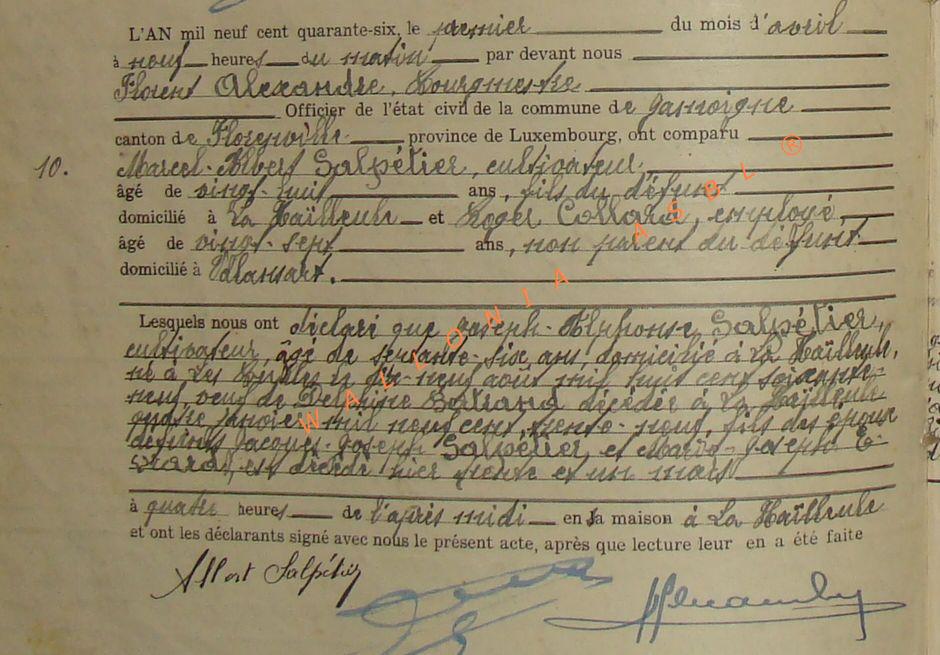 L'AN mil neuf cent quarante-six, le premier du mois d'avril
à neuf heures du matin par devant nous
Florent Alexandre, Bourgmestre
Officier de l'état civil de la commune de Jamoigne
canton de Florenville province de Luxembourg, ont comparu
10. Marcel-Albert Salpétier, cultivateur,
âgé de vingt-huit ans, fils du défunt
domicilié à La Hailleule et Roger Collard, employé,
âgé de vingt-sept ans, non parent du défunt
domicilié à Villansart.
Lesquels nous ont déclaré que Joseph-Alphonse Salpétier,
cultivateur, âgé de septante-six ans, domicilié à La Haïlleule,
né à Les Bulles le dix-neuf août mil huit cent soixante-
neuf, veuf de Delphine Bertrand décédée à La Haïlleule
quatre janvier mil neuf cent trente-neuf, fils des époux
défunts Jacques-Joseph Salpétier et Marie-Joseph
est décédé hier trente et un mars
à quatre heures de l'après midi en sa maison à La Haïlleule
et ont les déclarants signé avec nous le présent acte, après que lecture leur en a été faite
Albert Salpétier
WALLONIA ASBL ®